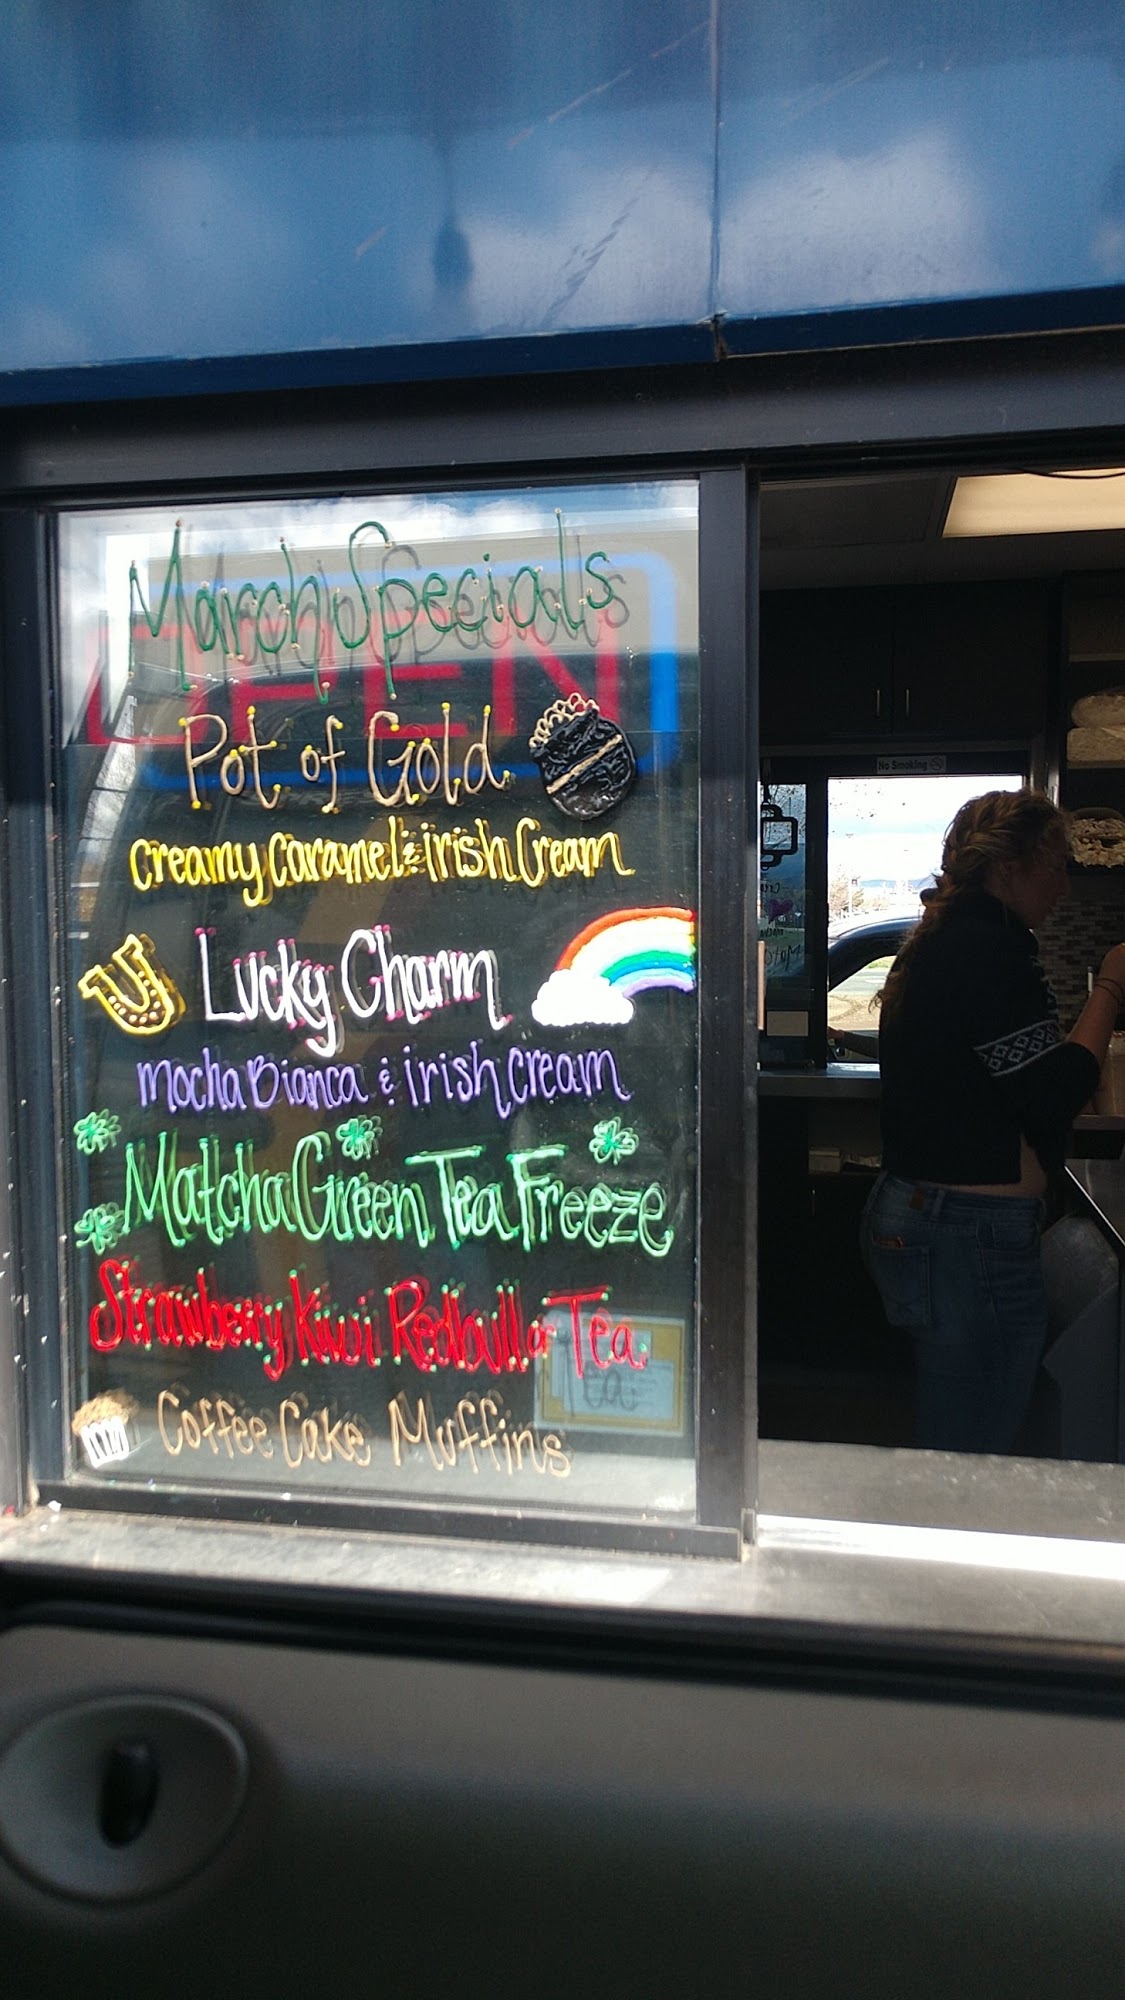 March Specials
OPEN
Pot of Gold
creamy caramel & irish cream
Lucky Charm
mocha Bianca & irish cream
Matcha Green Tea Freeze
Strawberry Kiwi Redbull or Tea
Coffee Cake Muffins
No Smoking